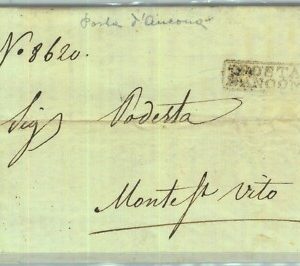 Posta d'Ancona
N° 8620.
POSTA
D'ANCONA
Sig Podesta
Monte S Vito